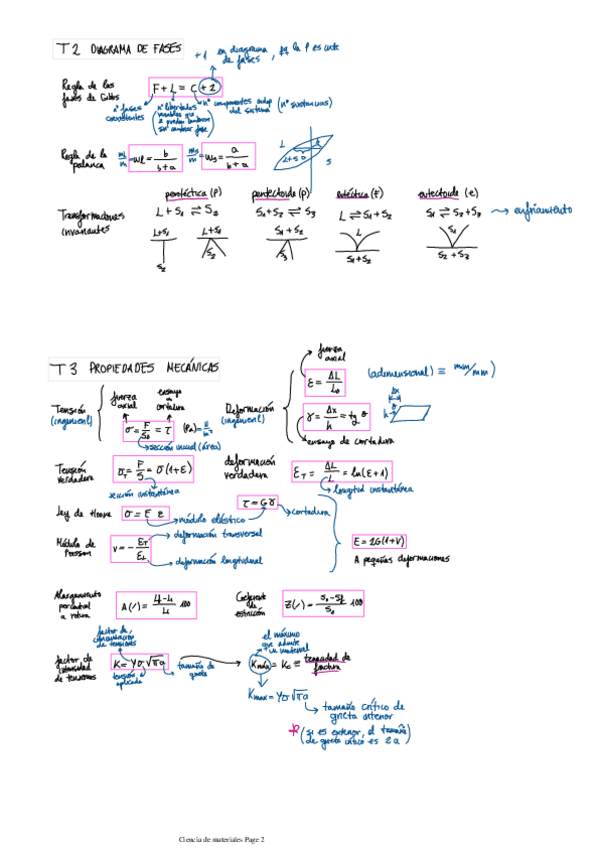 T2 DIAGRAMA DE FASES
+1 en diagrama de fases, pq la P es cnte
Regla de las fases de Gibbs
F + L = C + 2
nº fases
nº libertades (variables que puedes cambiar sin cambiar fase)
nº componentes indep del sistema (nº sustancias)
Regla de la palanca
ml/m = wl = b/(b+a)
ms/m = ws = a/(b+a)
L
L+S
S
Transformaciones invariantes
peritéctica (p)
L + S1 ⇌ S2
L+S1
S2
L+S1
S2
peritectoide (p)
S1+S2 ⇌ S3
S1 + S2
S3
eutéctica (E)
L ⇌ S1+S2
L
S1+S2
eutectoide (e)
S1 ⇌ S2+S3
S1
S2 + S3
→ enfriamiento
T3 PROPIEDADES MECÁNICAS
Tensión (ingenieril)
fuerza axial
ensayo cortadura
σ = F/S0 = τ
sección inicial (área)
Deformación (ingenieril)
fuerza axial
ε = ΔL/L0
(adimensional) ≡ mm/mm
γ = Δx/h = tg θ
Δx
h
θ
ensayo de cortadura
Tensión verdadera
σT = F/S = σ(1+ε)
sección instantánea
deformación verdadera
εT = ΔL/L = ln(ε+1)
longitud instantánea
Ley de Hooke
σ = E ε
módulo elástico
τ = Gγ
cortadura
Módulo de Poisson
deformación transversal
deformación longitudinal
E = 2G(1+ν)
A pequeñas deformaciones
Alargamiento porcentual a rotura
Coeficiente de estricción
factor de intensidad de tensiones
factor de concentración de tensiones
K = Yσ√πa
tensión aplicada
tamaño de grieta
el máximo que admite un material
Kmáx = Kc ≡ tenacidad de fractura
Kmax = Yσ√πa
tamaño crítico de grieta interior
* (si es exterior, el tamaño de grieta crítico es 2a)
Ciencia de materiales Page 2